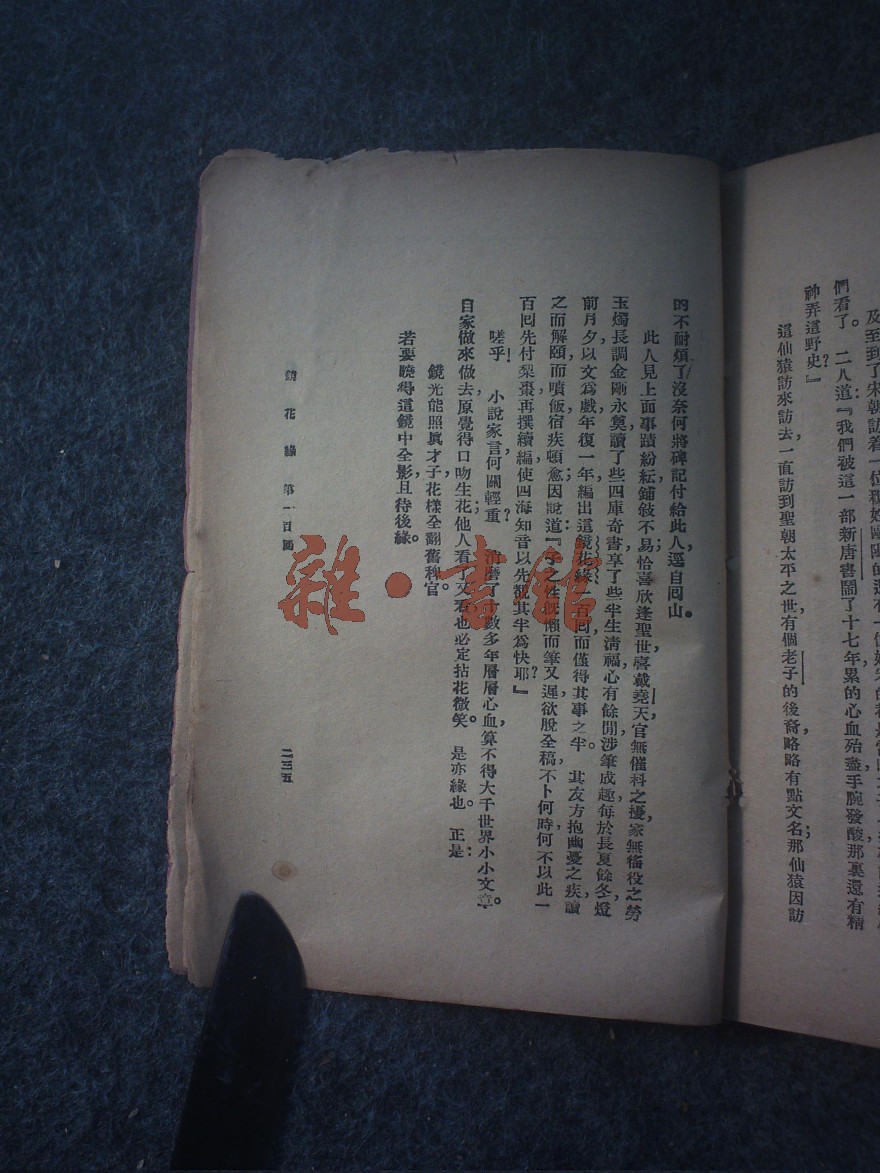 及至到了宋朝訪着一位
們看了。二人道:『我們被這一部新唐書鬧了十七年累的心血殆盡,手腕發酸,那裏還有精
神弄這野史?』
這仙猿訪來訪去,一直訪到聖朝太平之世,有個老子的後裔略略有點文名;那仙猿因訪
的不耐煩了,沒奈何,將碑記付給此人,逕自回山。
此人見上面事蹟紛紜,鋪敘不易;恰喜欣逢聖世,喜戴堯天,官無催科之擾,家無徭役之勞,
玉燭長調,金剛永奠;讀了些四庫奇書,享了些半生清福,心有餘閒,涉筆成趣,每於長夏餘冬,燈
前月夕,以文爲戲,年復一年,編出這鏡花緣一百回,而僅得其事之半。其友方抱幽憂之疾,讀
之而解頤,而噴飯,宿疾頓愈。因說道:『子之性既懶而筆又遲,欲脫全稿,不卜何時;何不以此一
百回先付梨棗,再撰續編,使四海知音以先覩其半爲快耶?』
嗟乎!小說家言,何關輕重?消磨了十數多年層層心血,算不得大千世界小小文章。
自家做來做去,原覺得口吻生花;他人看了又看,也必定拈花微笑。是亦緣也。正是:
鏡光能照眞才子,花樣全翻舊稗官。
若要曉得這鏡中全影,且待後緣。
鏡花緣 第一百回 二三五
雜·書館